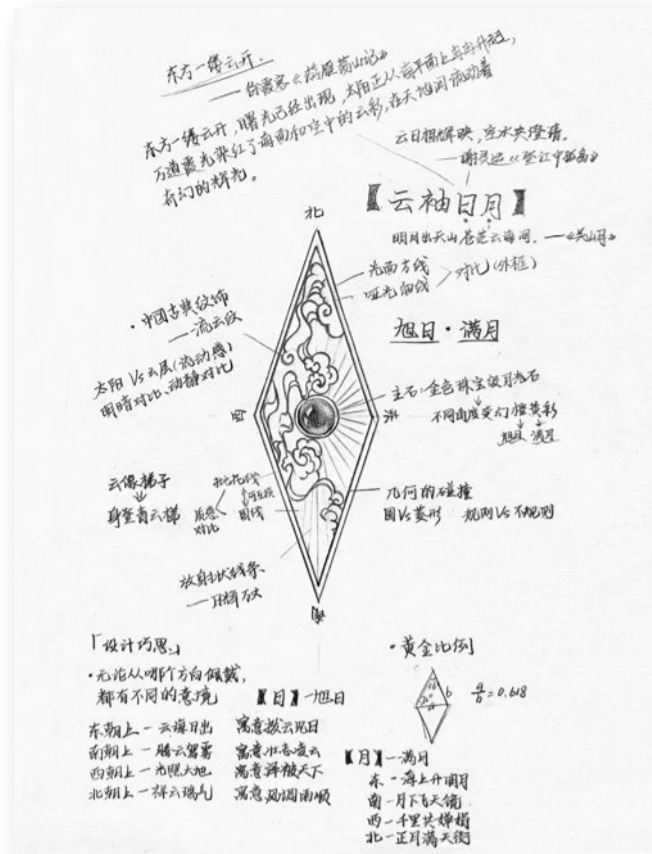 东方一缕云开.
——徐霞客《游雁荡山记》
东方一缕云开，曙光已经出现，太阳正从海平面上冉冉升起，
万道霞光染红了海面和空中的云彩，在天地间流动着
奇幻的辉光。
云日相辉映，空水共澄鲜。
——谢灵运《登江中孤屿》
【云袖日月】
明月出天山，苍茫云海间。——《关山月》
北
光面方线
哑光细线
对比(外框)
·中国古典纹饰
——流云纹
旭日·满月
太阳Vs云层(流动感)
明暗对比、动静对比
西
东
主石:金色珠宝级月光石
不同角度变幻橙黄彩
旭日 满月
云像梯子
身登青云梯
质感
对比
圆线
几何的碰撞
圆Vs菱形 规则Vs不规则
放射状线条
——日辉万丈
南
「设计巧思」
·无论从哪个方向佩戴，
都有不同的意境
【日】—旭日
东朝上—云海日出 寓意拨云见日
南朝上—腾云驾雾 寓意壮志凌云
西朝上—光照大地 寓意泽被天下
北朝上—祥云瑞气 寓意风调雨顺
·黄金比例
b
a/b=0.618
【月】—满月
东—海上升明月
南—月下飞天镜
西—千里共婵娟
北—正月满天街